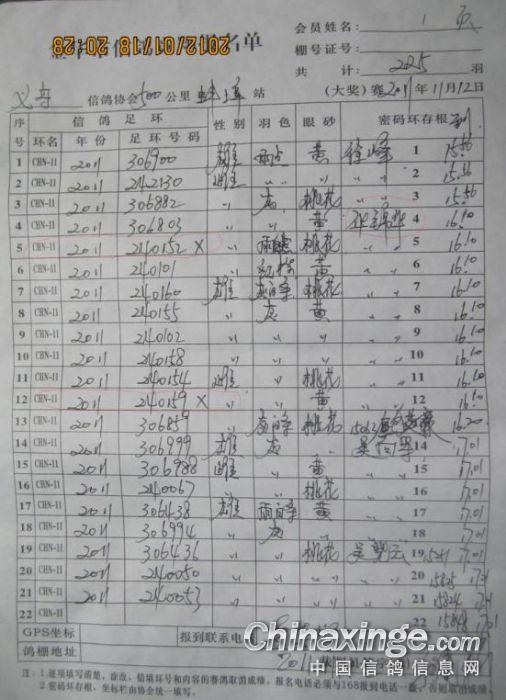 2012/01/18 20:28
名单
会员姓名： 1 页
棚号证号：
共 计： 225 羽
义乌 信鸽协会 500 公里 蚌埠 站 (大奖) 赛 2011 年 11 月 12 日
序号 信鸽足环 性别 羽色 眼砂 密码环存根
环名 年份 足环号码
1 CHN-11 2011 306900 雄 雨点 黄 徐峰 1 15.56
2 CHN-11 2011 242130 雌 〃 〃 〃 2 15.56
3 CHN-11 2011 306882 〃 灰 桃花 〃 3 15.56
4 CHN-11 2011 306803 〃 〃 黄 4 16.10
5 CHN-11 2011 240152 X 〃 桃花 〃 5 16.10
6 CHN-11 2011 240101 〃 黄 〃 6 16.10
7 CHN-11 2011 240160 雄 灰白条 桃花 〃 7 16.10
8 CHN-11 2011 240155 〃 灰 黄 〃 8 16.10
9 CHN-11 2011 240102 〃 〃 〃 〃 9 16.10
10 CHN-11 2011 240158 〃 〃 〃 〃 10 16.10
11 CHN-11 2011 240154 雌 〃 桃花 〃 11 16.10
12 CHN-11 2011 240159 X 〃 〃 黄 〃 12 16.10
13 CHN-11 2011 306859 〃 灰白条 桃花 16.20
14 CHN-11 2011 306999 雄 灰 〃 14 17.01
15 CHN-11 2011 306988 雌 〃 黄 〃 15 17.01
16 CHN-11 2011 240067 〃 〃 桃花 〃 16 17.01
17 CHN-11 2011 306438 雄 雨白条 黄 〃 17 17.01
18 CHN-11 2011 306994 〃 灰 〃 〃 18 17.01
19 CHN-11 2011 306436 〃 〃 桃花 19 17.01
20 CHN-11 2011 240050 〃 〃 〃 〃 20 17.01
21 CHN-11 2011 240053 〃 〃 〃 〃 21 17.01
22 CHN-11 22
GPS坐标 报到联系电
鸽棚地址
Chinaxinge.com
中国信鸽信息网
注：1.逐项填写清楚，涂改、错填环号和内容的赛鸽取消成绩。报名电话必须与168报到电话一
2.密码环存根、坐标栏由协会统一填写。